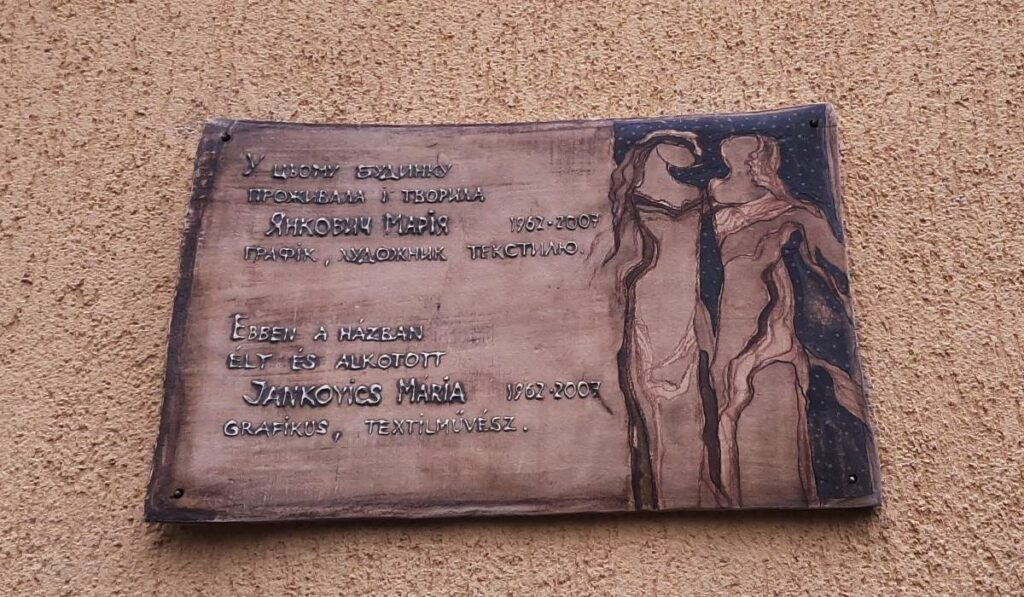 У ЦЬОМУ БУДИНКУ
ПРОЖИВАЛА І ТВОРИЛА
ЯНКОВИЧ МАРІЯ 1962-2007
ГРАФІК, ХУДОЖНИК ТЕКСТИЛЮ.
EBBEN A HÁZBAN
ÉLT ÉS ALKOTOTT
JANKOVICS MARIA 1962-2007
GRAFIKUS, TEXTILMŰVÉSZ.